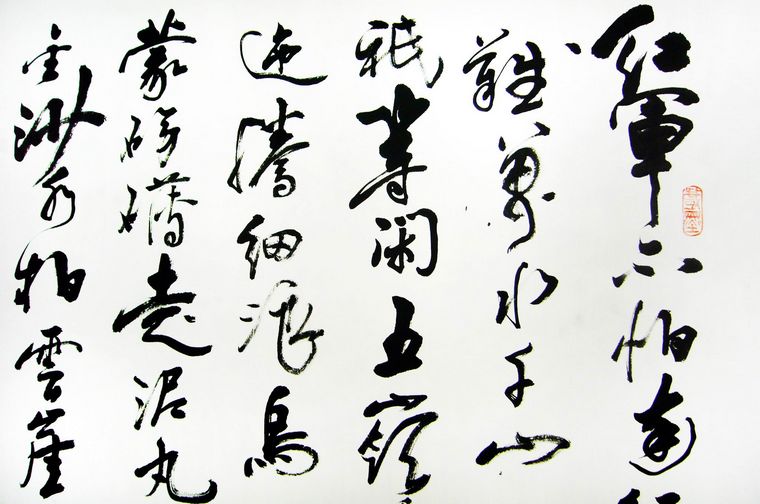 紅軍不怕遠
難萬水千山
祇等閑五嶺
迤騰細浪烏
蒙磅礴走泥丸
金沙水拍雲崖